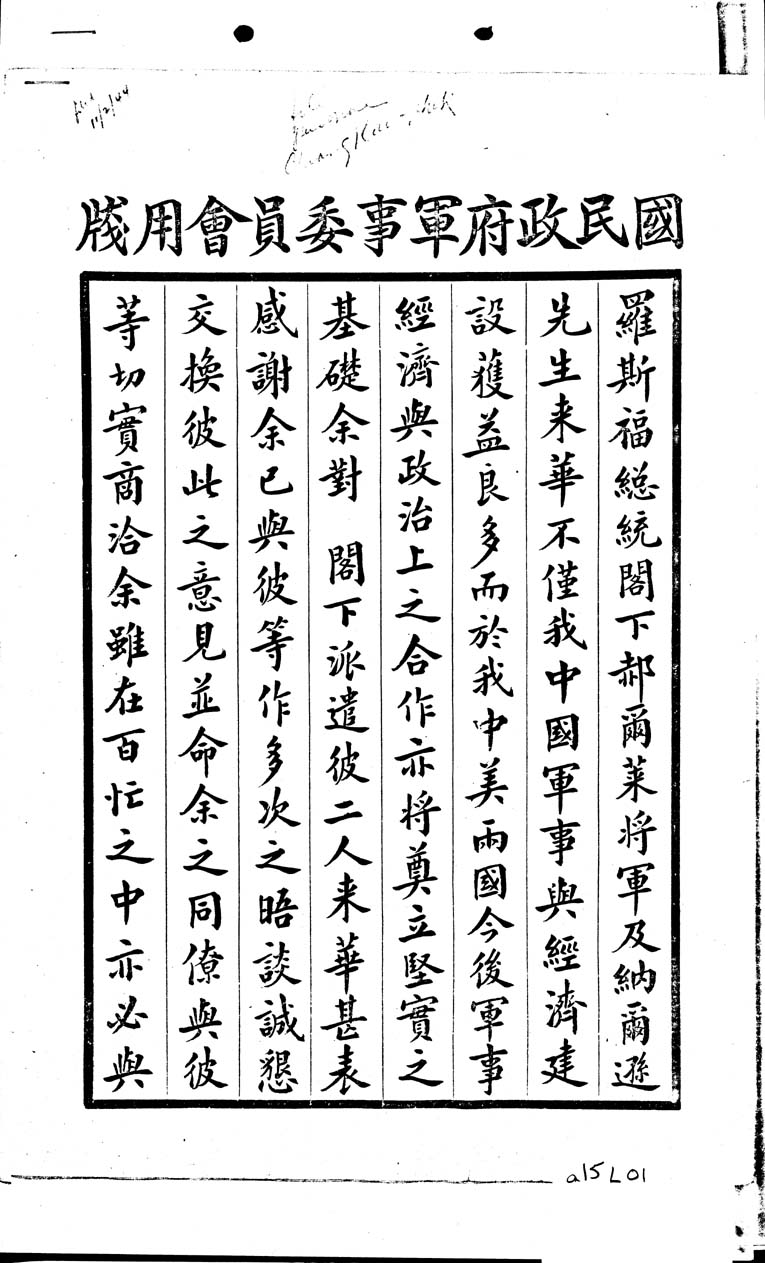 11/2/44
Chiang Kai-shek
國民政府軍事委員會用牋
羅斯福總統閣下郝爾萊將軍及納爾遜
先生来華不僅我中國軍事與經濟建
設獲益良多而於我中美兩國今後軍事
經濟與政治上之合作亦將奠立堅實之
基礎余對 閣下派遣彼二人来華甚表
感謝余已與彼等作多次之晤談誠懇
交換彼此之意見並命余之同僚與彼
等切實商洽余雖在百忙之中亦必與
a15L01